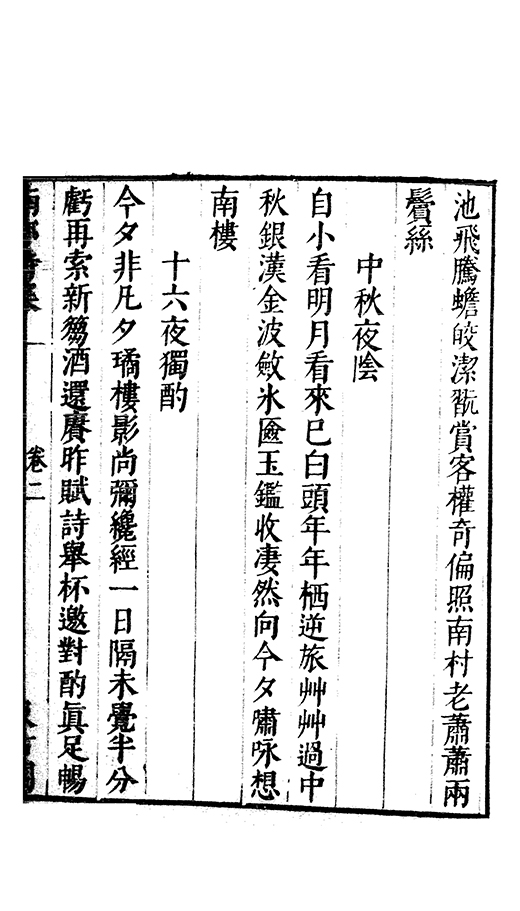 池飛騰蟾皎潔翫賞客權奇偏照南村老蕭蕭兩
鬢絲
中秋夜陰
自小看明月看來已白頭年年栖逆旅艸艸過中
秋銀漢金波斂氷匳玉鑑收凄然向今夕嘯咏想
南樓
十六夜獨酌
今夕非凡夕璚樓影尚彌纔經一日隔未覺半分
虧再索新篘酒還賡昨賦詩舉杯邀對酌眞足暢
卷二